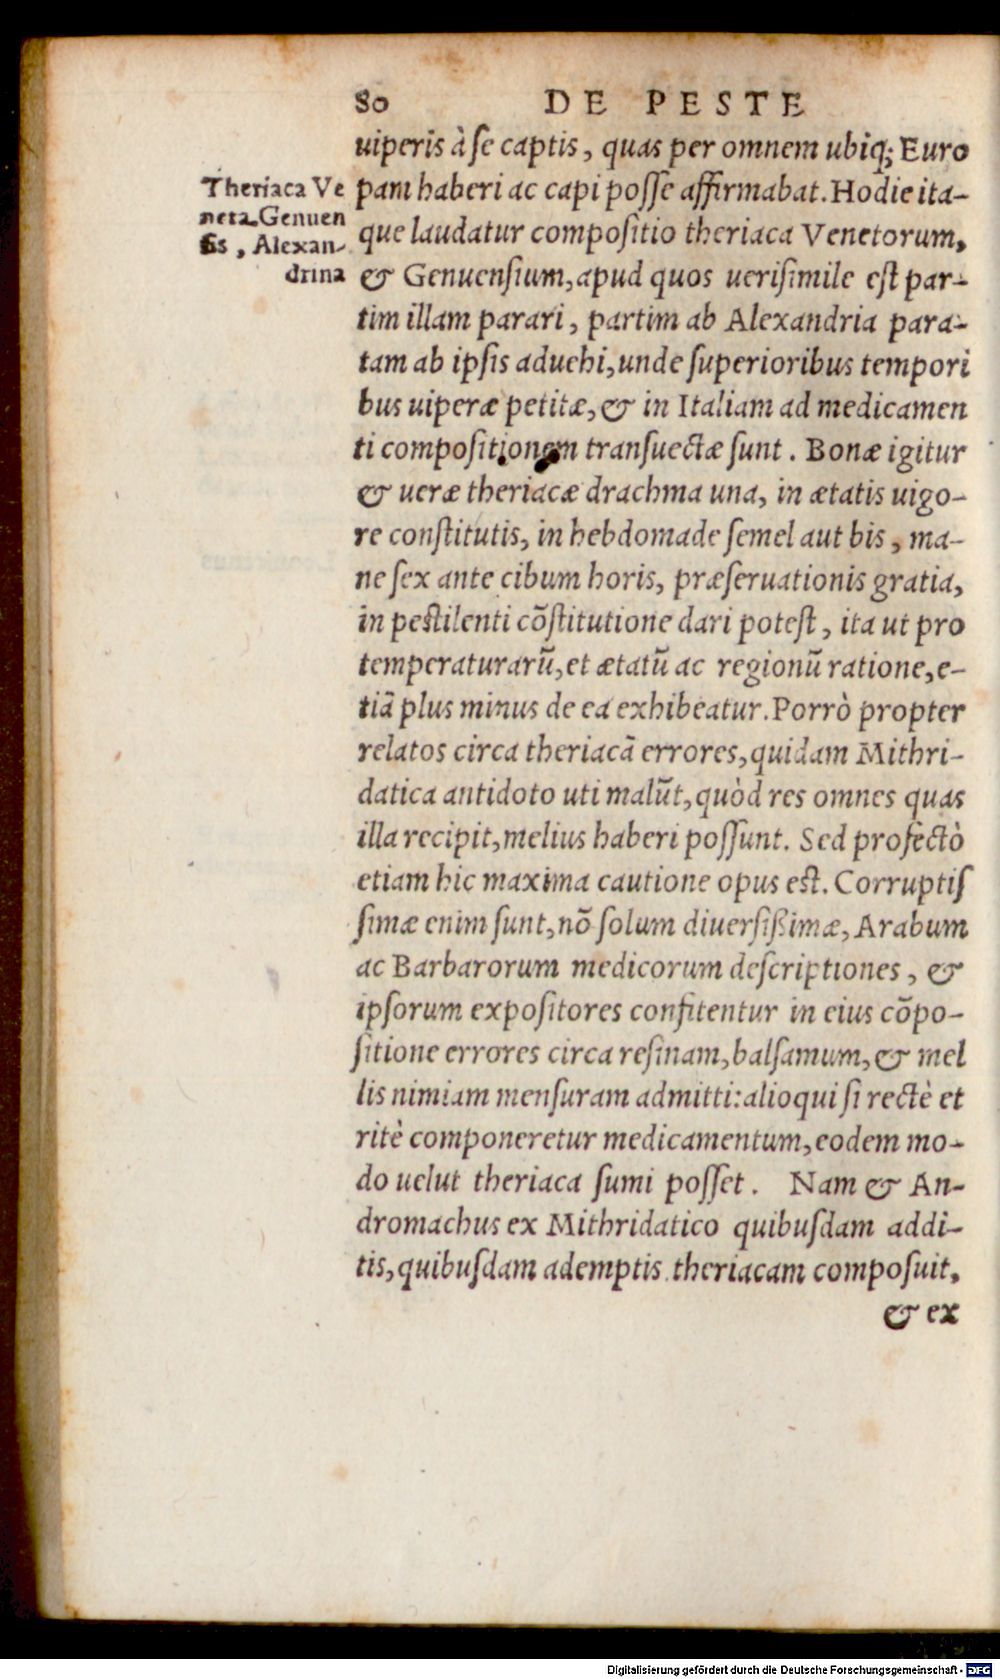 80 DE PESTE
uiperis à se captis, quas per omnem ubiq; Euro
pam haberi ac capi posse affirmabat. Hodie ita-
que laudatur compositio theriaca Venetorum,
& Genuensium, apud quos uerisimile est par-
tim illam parari, partim ab Alexandria para-
tam ab ipsis aduehi, unde superioribus tempori
bus uiperæ petitæ, & in Italiam ad medicamen
ti compositionem transuectæ sunt. Bonæ igitur
& ueræ theriacæ drachma una, in ætatis uigo-
re constitutis, in hebdomade semel aut bis, ma-
ne sex ante cibum horis, præseruationis gratia,
in pestilenti cōstitutione dari potest, ita ut pro
temperaturarū, et ætatū ac regionū ratione, e-
tiā plus minus de ea exhibeatur. Porrò propter
relatos circa theriacā errores, quidam Mithri-
datica antidoto uti malūt, quòd res omnes quas
illa recipit, melius haberi possunt. Sed profectò
etiam hic maxima cautione opus est. Corruptis
simæ enim sunt, nō solum diuersißimæ, Arabum
ac Barbarorum medicorum descriptiones, &
ipsorum expositores confitentur in eius cōpo-
sitione errores circa resinam, balsamum, & mel
lis nimiam mensuram admitti: alioqui si rectè et
ritè componeretur medicamentum, eodem mo-
do uelut theriaca sumi posset. Nam & An-
dromachus ex Mithridatico quibusdam addi-
tis, quibusdam ademptis theriacam composuit,
& ex
Theriaca Ve
neta Genuen
sis, Alexan-
drina
Digitalisierung gefördert durch die Deutsche Forschungsgemeinschaft - DFG